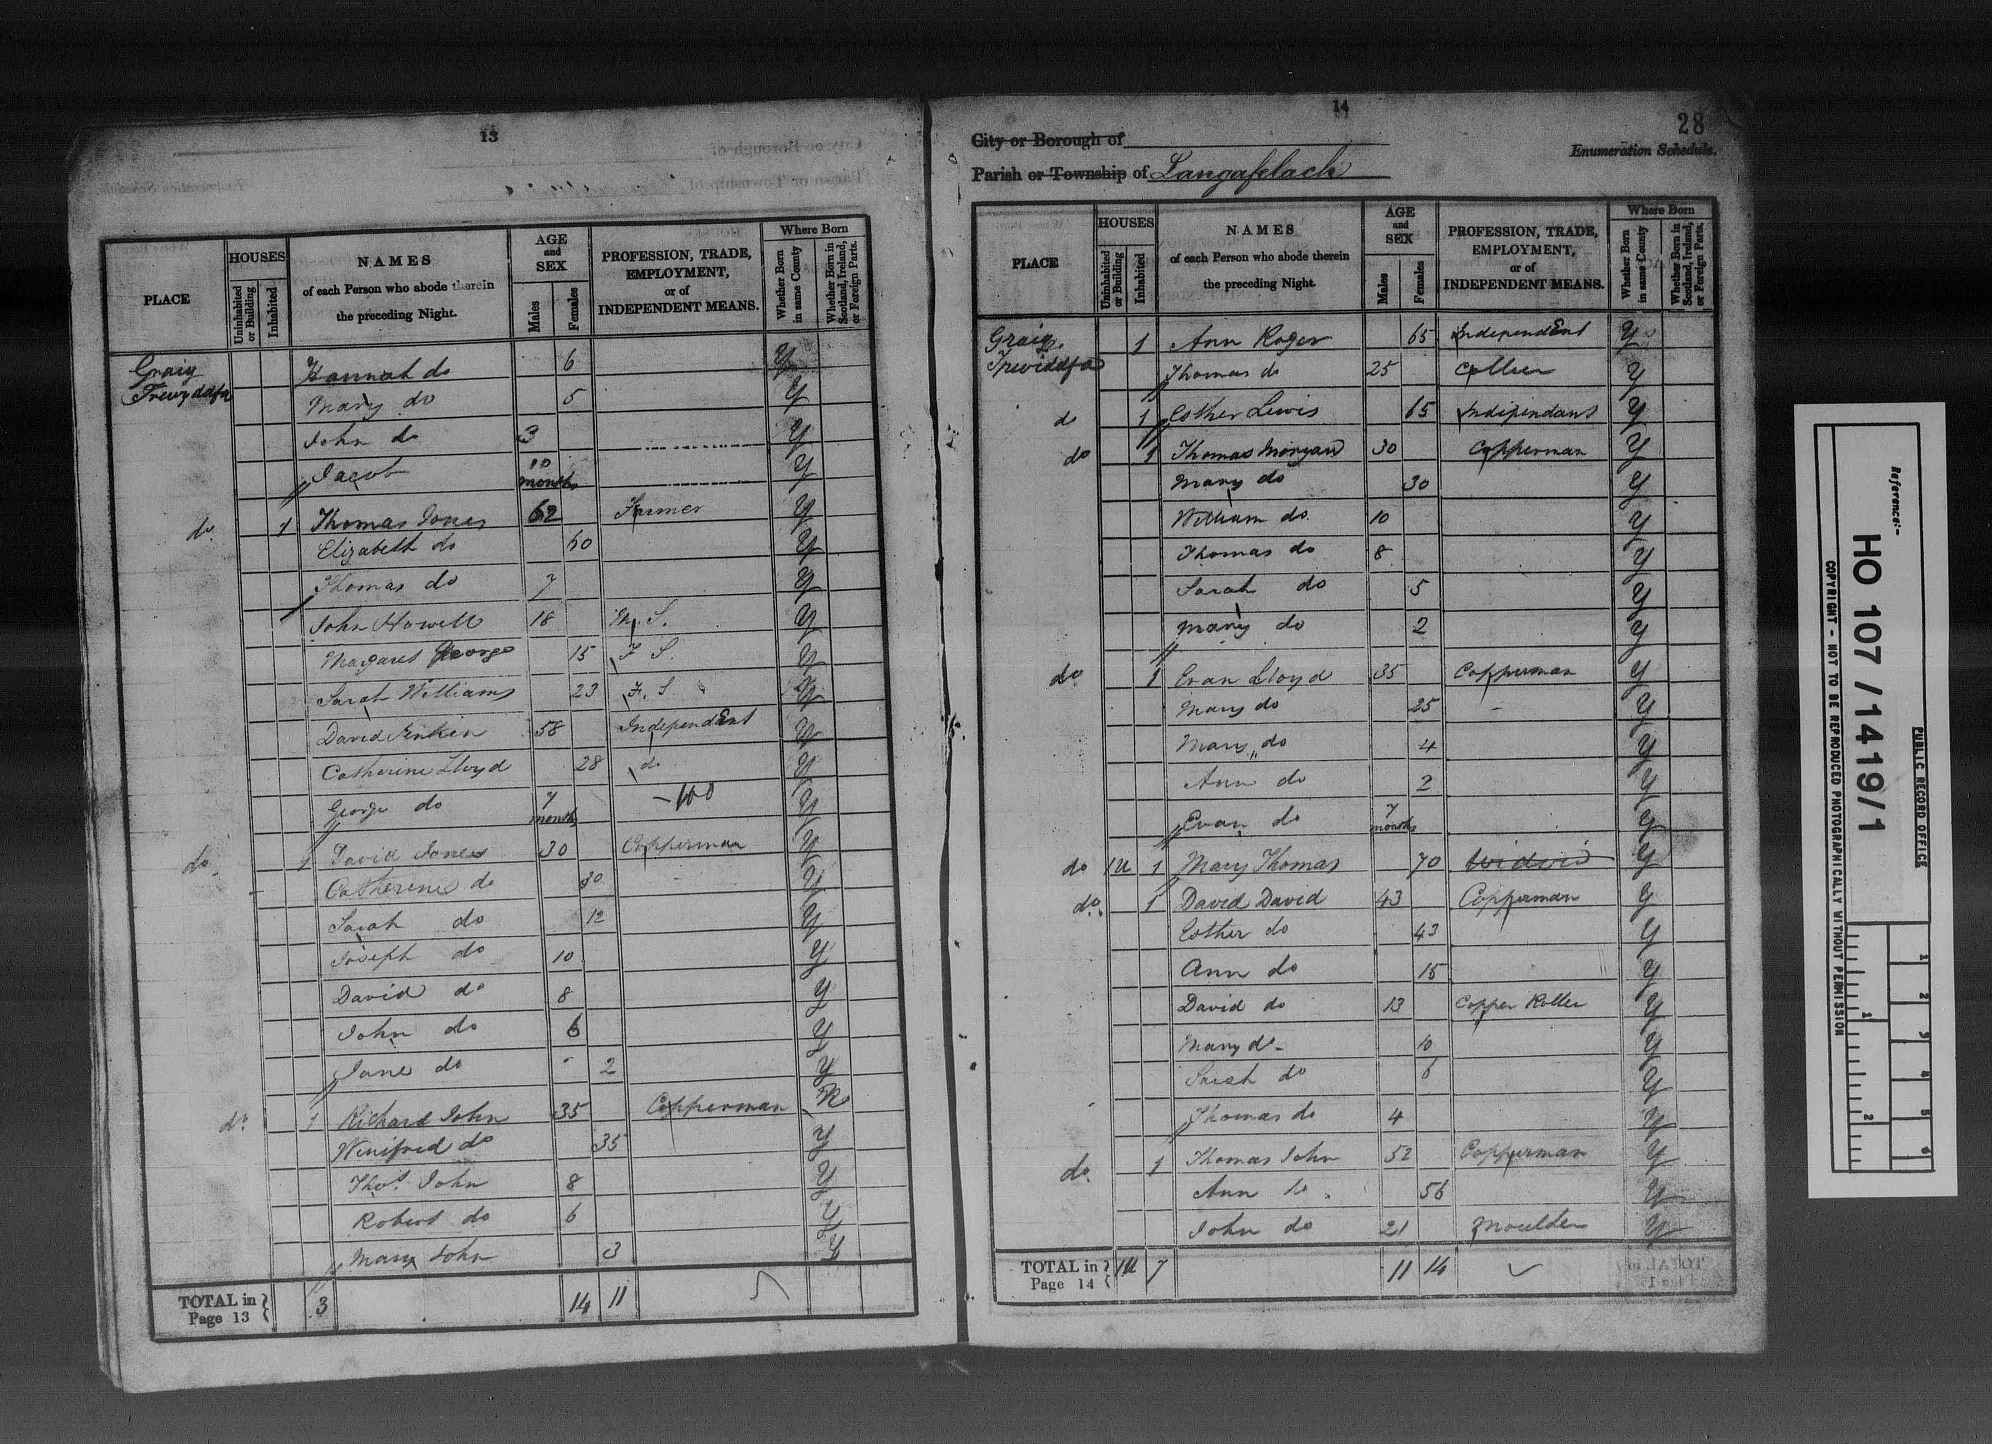 13
PLACE
HOUSES
Uninhabited or Building
Inhabited
NAMES
of each Person who abode therein
the preceding Night.
AGE
and
SEX
Males
Females
PROFESSION, TRADE,
EMPLOYMENT,
or of
INDEPENDENT MEANS.
Where Born
Whether Born in same County
Whether Born in Scotland, Ireland, or Foreign Parts.
Graig Hannah do 6 Y
Trewyddfa Mary do 5 Y
John do 3 Y
Jacob 10 months Y
do 1 Thomas Jones 62 Farmer Y
Elizabeth do 60 Y
Thomas do 7 Y
John Howell 18 M. S. Y
Margaret George 15 F S. Y
Sarah Williams 23 F. S Y
David Jenkin 58 IndependEnt Y
Catherine Lloyd 28 do Y
George do 7 months Y
do 1 David Jones 30 Copperman Y
Catherine do 30 Y
Sarah do 12 Y
Joseph do 10 Y
David do 8 Y
John do 6 Y
Jane do 2 Y
do 1 Richard John 35 Copperman
Winifred do 35 Y
Thos John 8 Y
Robert do 6 Y
Mary John 3 Y
TOTAL in Page 13 3 14 11
14
28
City or Borough of
Enumeration Schedule.
Parish or Township of Langafelach
PLACE
HOUSES
Uninhabited or Building
Inhabited
NAMES
of each Person who abode therein
the preceding Night.
AGE
and
SEX
Males
Females
PROFESSION, TRADE,
EMPLOYMENT,
or of
INDEPENDENT MEANS.
Where Born
Whether Born in same County
Whether Born in Scotland, Ireland, or Foreign Parts.
Graig 1 Ann Roger 65 IndependEnt Y
Trewiddfa Thomas do 25 Collier Y
do 1 Esther Lewis 65 Independant Y
do 1 Thomas Morgan 30 Copperman Y
Mary do 30 Y
William do 10 Y
Thomas do 8 Y
Sarah do 5 Y
Mary do 2 Y
do 1 Evan Lloyd 35 Copperman Y
Mary do 25 Y
Mary do 4 Y
Ann do 2 Y
Evan do 7 months Y
do 1U 1 Mary Thomas 70 Y
do 1 David David 43 Copperman Y
Esther do 43 Y
Ann do 15 Y
David do 13 Copper Roller Y
Mary do 10 Y
Sarah do 6 Y
Thomas do 4 Y
do 1 Thomas John 52 Copperman Y
Ann do 56 Y
John do 21 Moulder Y
TOTAL in Page 14 1U 7 11 14
Reference:-
HO 107/1419/1
PUBLIC RECORD OFFICE
COPYRIGHT - NOT TO BE REPRODUCED PHOTOGRAPHICALLY WITHOUT PERMISSION
1 2 3 4 5 6
1 2